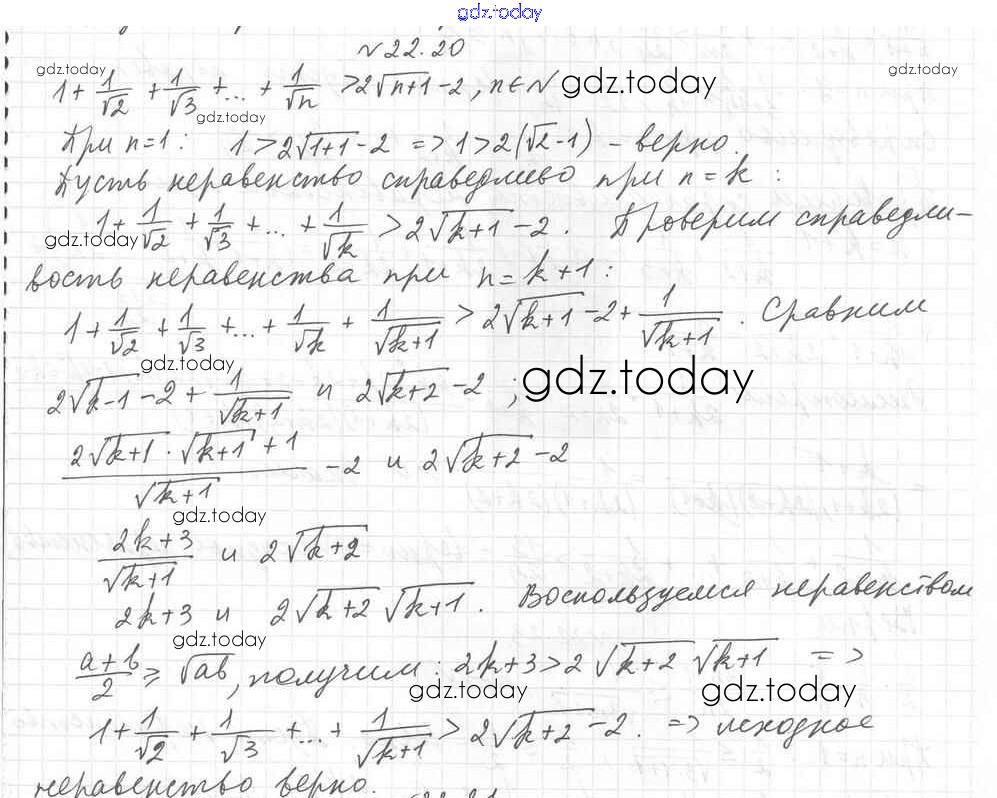 gdz.today
№22.20
gdz.today gdz.today
1 + 1/√2 + 1/√3 + ... + 1/√n > 2√(n+1) - 2, n∈N gdz.today
gdz.today
При n=1: 1 > 2√(1+1) - 2 => 1 > 2(√2 - 1) - верно.
Пусть неравенство справедливо при n = k :
1 + 1/√2 + 1/√3 + ... + 1/√k > 2√(k+1) - 2. Проверим справедли-
gdz.today
вость неравенства при n = k+1 :
1 + 1/√2 + 1/√3 + ... + 1/√k + 1/√(k+1) > 2√(k+1) - 2 + 1/√(k+1). Сравним
gdz.today
2√(k-1) - 2 + 1/√(k+1) и 2√(k+2) - 2 ; gdz.today
(2√(k+1) · √(k+1) + 1)/√(k+1) - 2 и 2√(k+2) - 2
gdz.today
(2k+3)/√(k+1) и 2√(k+2)
2k+3 и 2√(k+2) √(k+1). Воспользуемся неравенством
gdz.today
(a+b)/2 ≥ √ab, получим: 2k+3 > 2√(k+2) √(k+1) =>
gdz.today gdz.today
1 + 1/√2 + 1/√3 + ... + 1/√(k+1) > 2√(k+2) - 2. => исходное
gdz.today
неравенство верно.